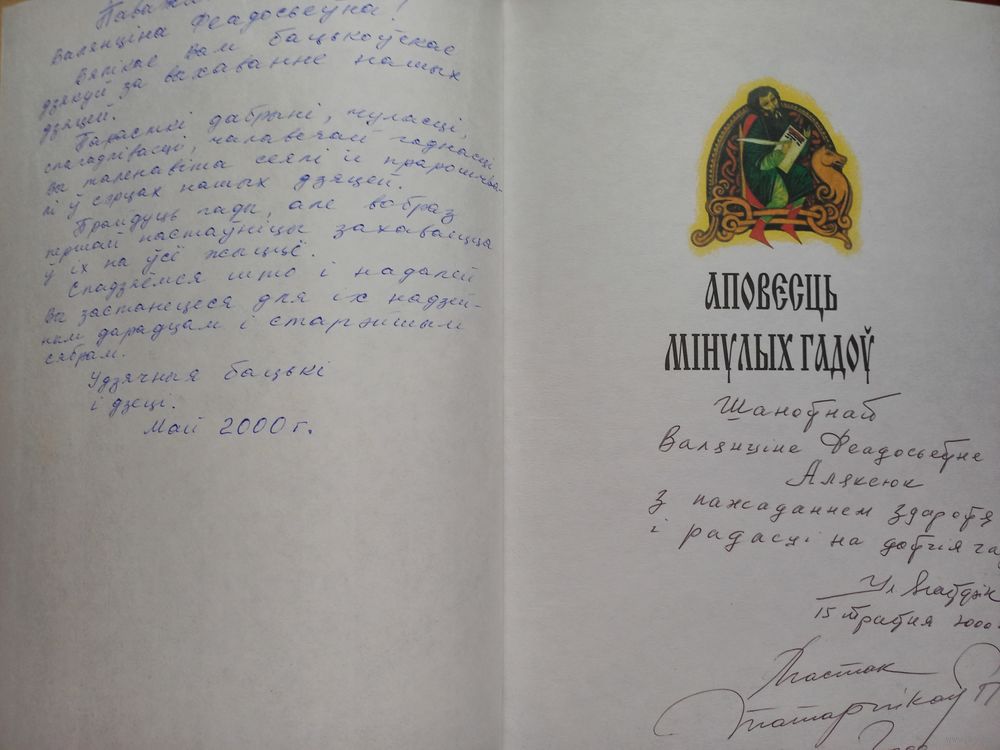 Паважа
Валянціна Феадосьеўна!
Вялікае Вам бацькоўскае
дзякуй за выхаванне нашых
дзяцей.
Парасткі дабрыні, чуласці,
спагадлівасці, чалавечай годнасці
Вы таленавіта сеялі й прарошчва-
лі ў сэрцах нашых дзяцей.
Пройдуць гады, але вобраз
першай настаўніцы захаваецца
ў іх на ўсё жыццё.
Спадзяёмся што і надалей
Вы застанецеся для іх надзей-
ным дарадцам і старэйшым
сябрам.
Удзячныя бацькі
і дзеці.
Май 2000 г.
АПОВЕСЦЬ
МІНУЛЫХ ГАДОЎ
Шаноўнай
Валянціне Феадосьеўне
Аляксюк
з пажаданнем здароўя
і радасці на доўгія га
Ул
15 траўня 2000
Мастак
Татарнікаў П